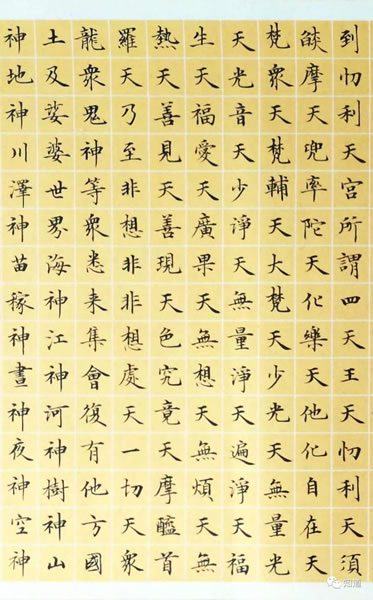 到忉利天宮所謂四天王天忉利天須
燄摩天兜率陀天化樂天他化自在天
梵衆天梵輔天大梵天少光天無量光
天光音天少淨天無量淨天遍淨天福
生天福愛天廣果天無想天無煩天無
熱天善見天善現天色究竟天摩醯首
羅天乃至非想非非想處天一切天衆
龍衆鬼神等衆悉来集會復有他方國
土及娑婆世界海神江神河神樹神山
神地神川澤神苗稼神晝神夜神空神